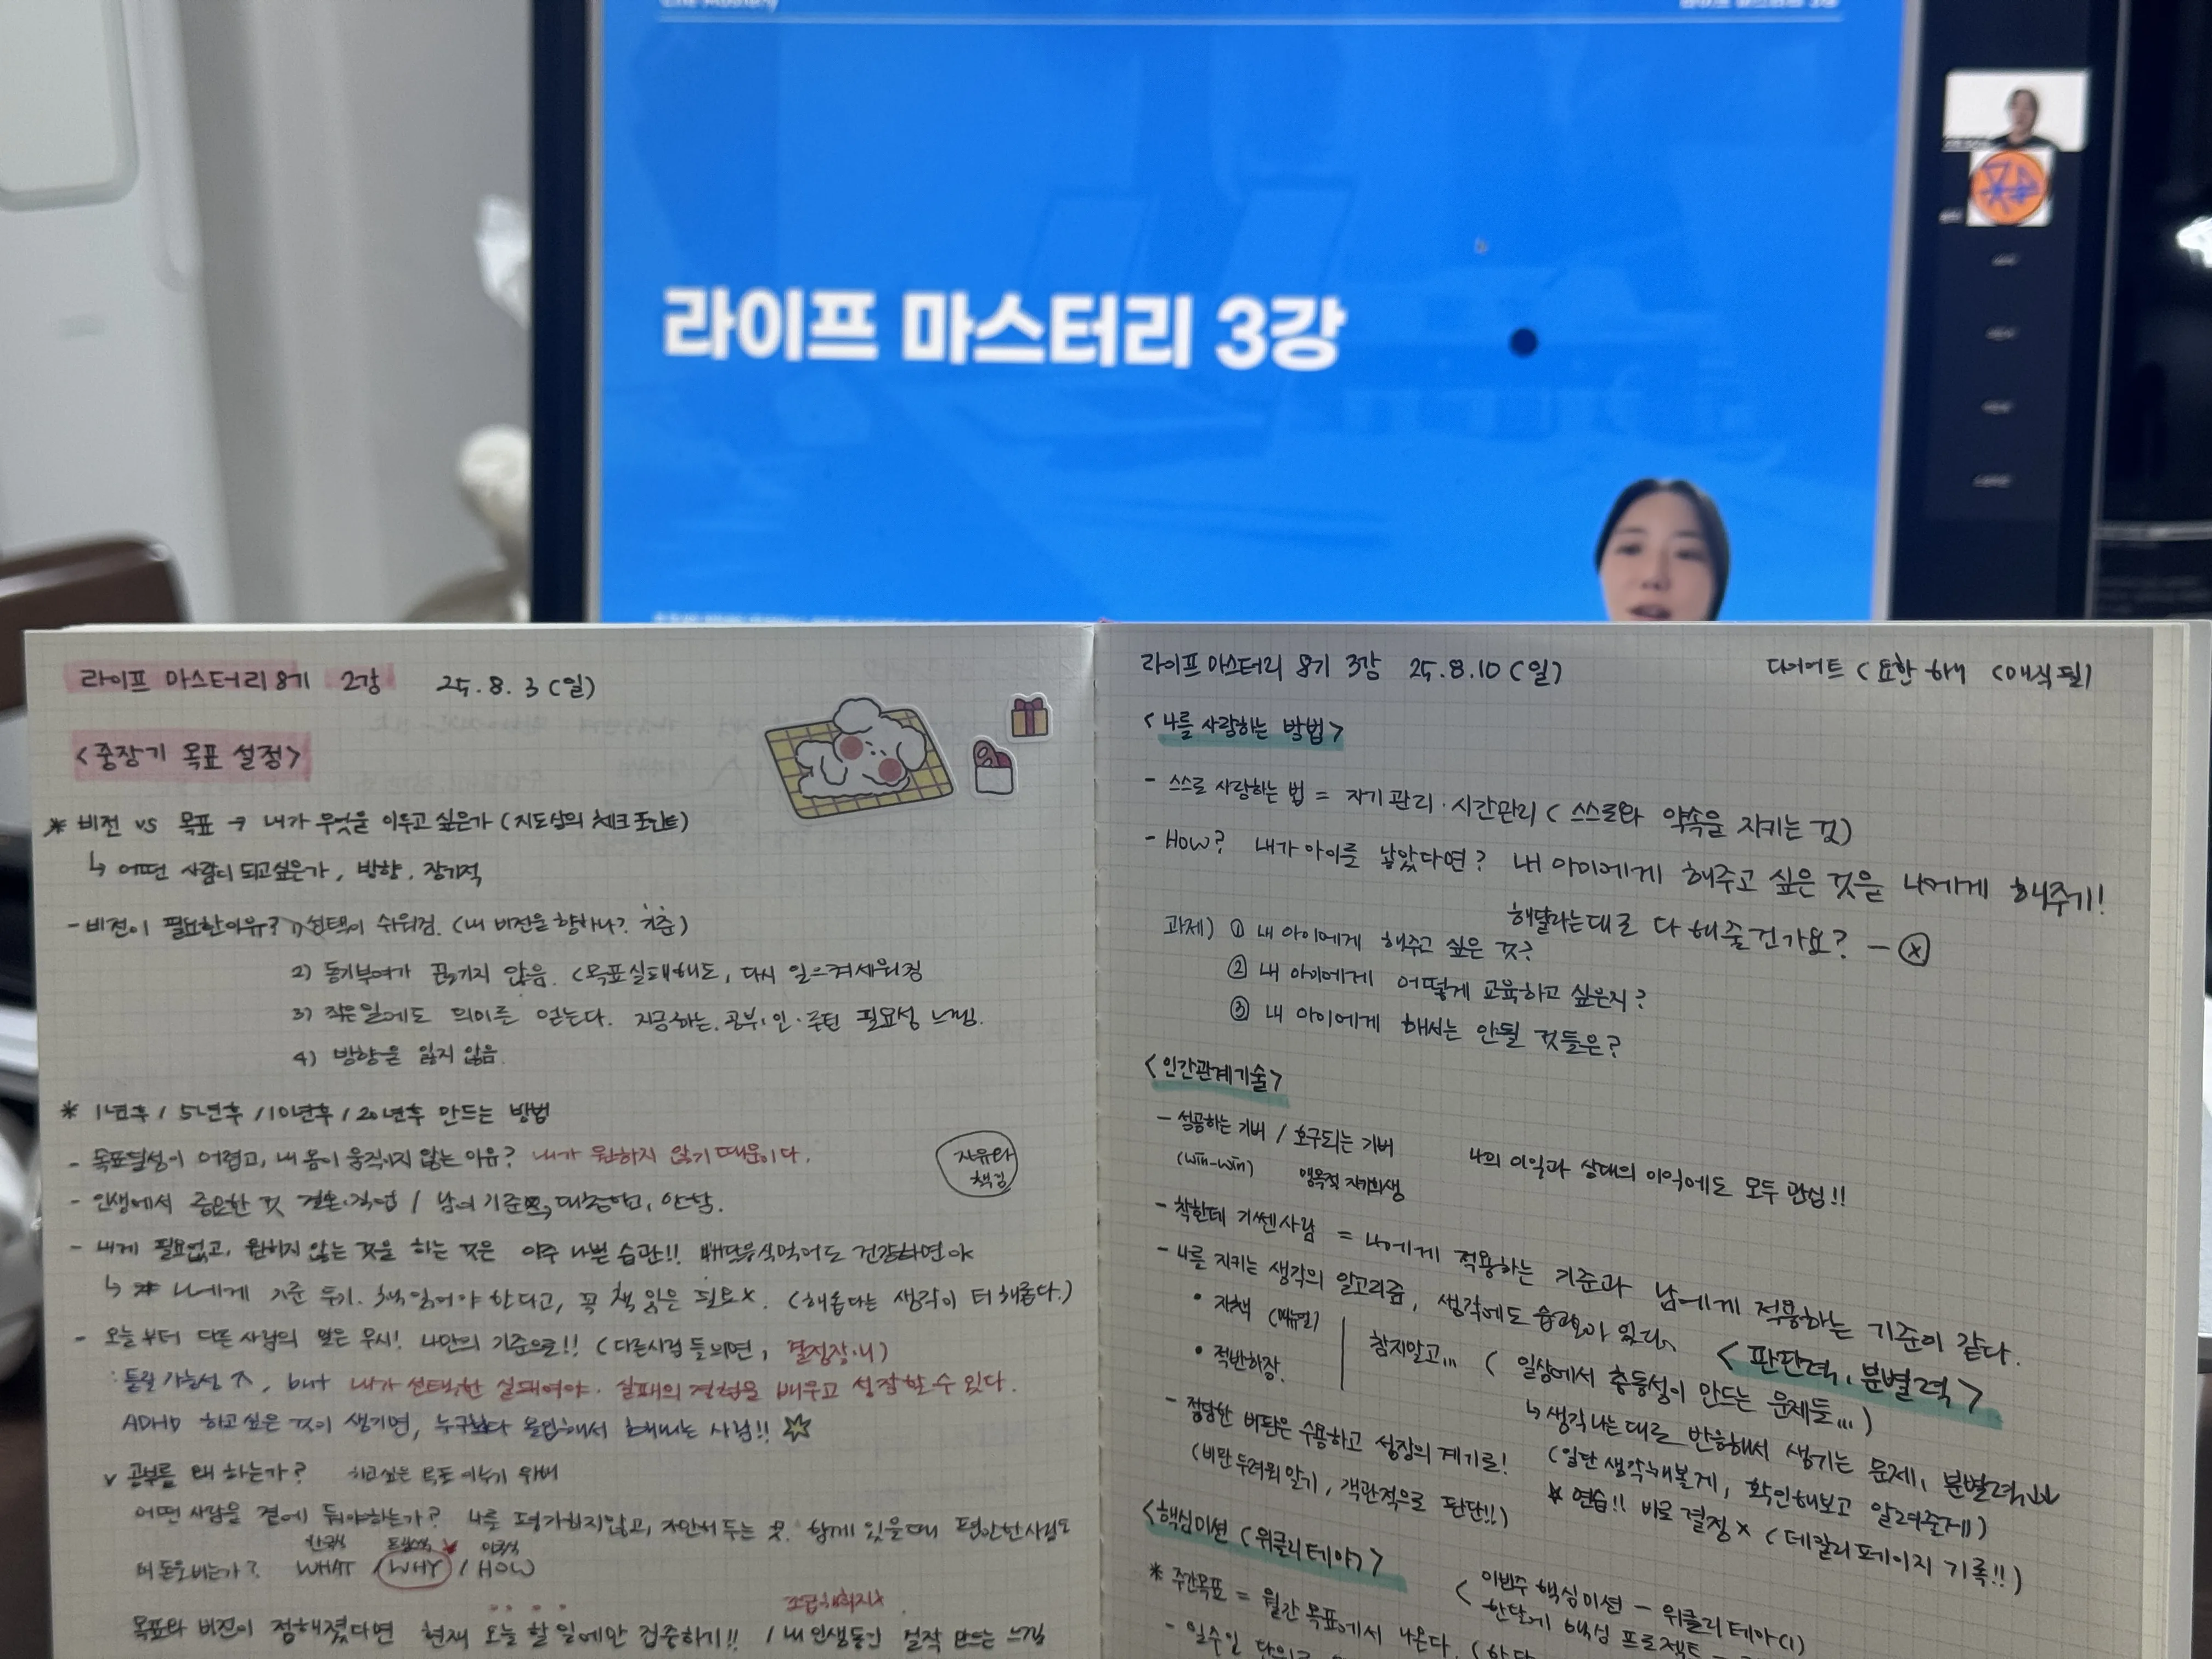 라이프 마스터리 3강
라이프 마스터리 8기 2강 25.8.3(일)
<중장기 목표 설정>
* 비전 vs 목표 → 내가 무엇을 이루고 싶은가 (지도상의 체크 포인트)
↳ 어떤 사람이 되고싶은가, 방향, 장기적
- 비전이 필요한이유? 1) 선택이 쉬워짐. (내 비전을 향하나? 기준)
2) 동기부여가 끊기지 않음. (목표실패해도, 다시 일으켜세워짐
3) 작은일에도 의미를 얻는다. 지금하는, 공부·일·루틴 필요성 느낌.
4) 방향을 잃지 않음.
* 1년후 / 5년후 / 10년후 / 20년후 만드는 방법
- 목표달성이 어렵고, 내 몸이 움직이지 않는 이유? 내가 원하지 않기 때문이다.
자유와
책임
- 인생에서 중요한 것 결혼·직업 / 남의 기준
- 내게 필요없고, 원하지 않는 것을 하는 것은 아주 나쁜 습관!! 배달음식먹어도 건강하면 야
↳ * 나에게 기준 두기. 책읽어야 한다고, 꼭 책 읽을 필요x. (해롭다는 생각이 더 해롭다.)
- 오늘부터 다른 사람의 말은 무시! 나만의 기준으로!! (다른사람 들으면, 결정장애)
: 틀릴 가능성↑, but 내가 선택한 실패여야. 실패의 경험을 배우고 성장할 수 있다.
ADHD 하고싶은 것이 생기면, 누구보다 몰입해서 해내는 사람!!
v 공부를 왜 하는가? 하고싶은 목표 이루기 위해
어떤 사람을 곁에 둬야하는가? 나를 평가하지않고, 함께 있을때 편안한사람
왜 돈을버는가? WHAT / WHY / HOW
목표와 비전이 정해졌다면 현재 오늘 할 일에만 집중하기!! / 내 인생동안 걸작 만드는 느낌
라이프 마스터리 8기 3강 25.8.10(일)
다이어트
<나를 사랑하는 방법>
- 스스로 사랑하는 법 = 자기관리·시간관리 (스스로와 약속을 지키는 것)
- How? 내가 아이를 낳았다면? 내 아이에게 해주고 싶은 것을 나에게 해주기!
해달라는대로 다 해줄건가요? - ⓧ
과제) ① 내 아이에게 해주고 싶은 것?
② 내 아이에게 어떻게 교육하고 싶은지?
③ 내 아이에게 해서는 안될 것들은?
<인간관계기술>
- 성공하는 기버 / 호구되는 기버
(win-win) 맹목적 자기희생
나의 이익과 상대의 이익에도 모두 관심!!
- 착한데 기쎈사람 = 나에게 적용하는 기준과 남에게 적용하는 기준이 같다.
- 나를 지키는 생각의 알고리즘, 생각에도 습관이 있다.
<판단력, 분별력>
• 자책
• 적반하장
참지말고... (일상에서 충동성이 만드는 문제들...)
↳ 생각나는대로 반응해서 생기는 문제, 분별력↓↓
- 정당한 비판은 수용하고 성장의 계기로!
(일단 생각해볼게, 확인해보고 알려줄게)
(비판 두려워 않기, 객관적으로 판단!!)
* 연습!! 바로 결정 x (데칼리페이지 기록!!)
<핵심미션 (위클리 테마)>
* 주간목표 = 월간 목표에서 나온다.
이번주 핵심미션 - 위클리 테마(1)
한달에 핵심 프로젝트 -
- 일주일 단위로